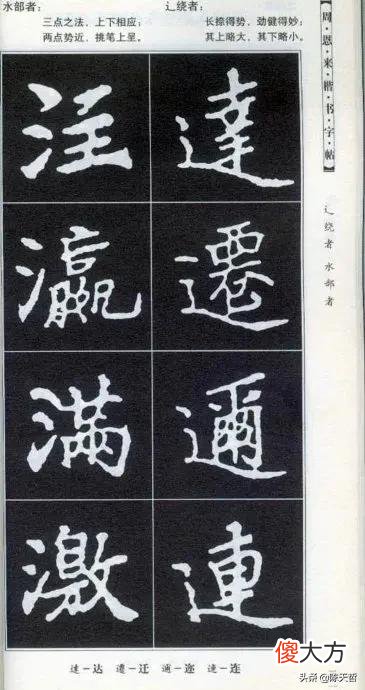 水部者:
三点之法，上下相应；
两点势近，挑笔上呈。
辶绕者:
长捺得势，劲健得妙；
其上略大，其下略小。
【周·恩·来·楷·书·字·帖】
辶绕者 水部者
達
遷
邇
連
注
瀛
滿
激
達－达 遷－迁 邇－迩 連－连
傻大方
头条@陈天哲